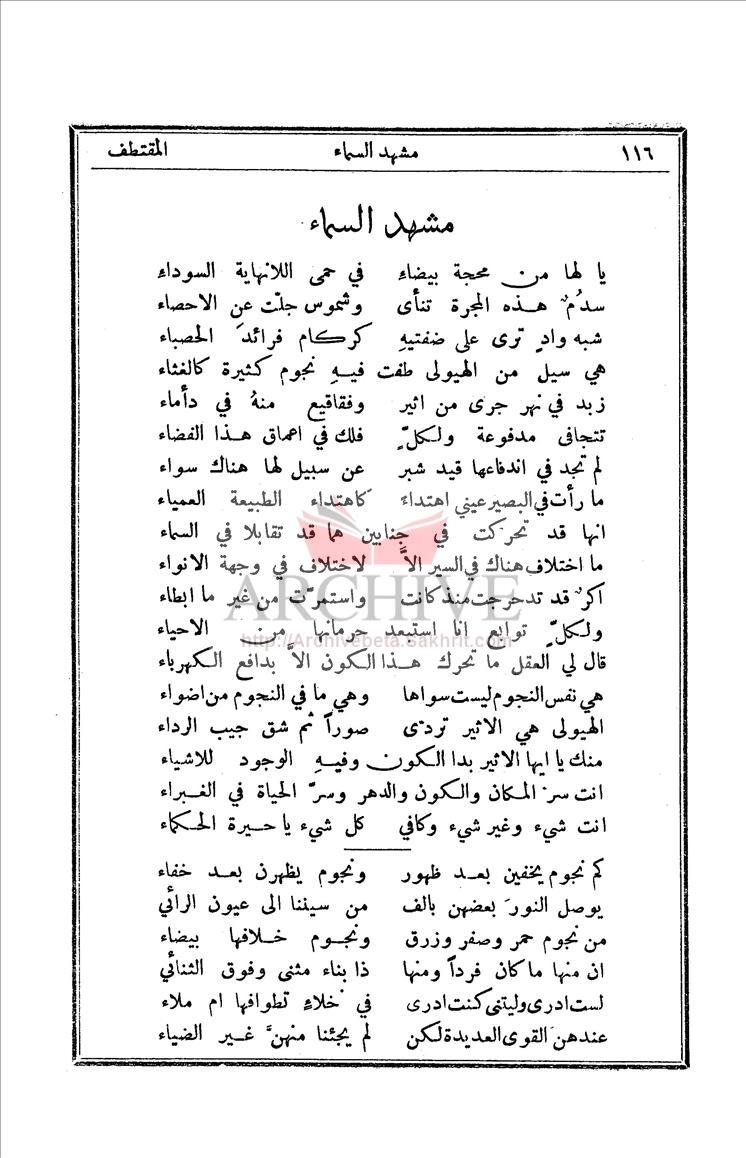 ١١٦ مشهد السماء المقتطف
مشهد السماء
يا لها من محجة بيضاءِ في حمى اللانهاية السوداء
سدُمٌ هذه المجرة تنأى وشموس جلّت عنِ الاحصاء
شبه وادٍ ترى على ضفتيهِ كركام فرائدَ الحصباء
هي سيل من الهيولى طفت فيهِ نجوم كثيرة كالغثاء
زبد في نهر جرى من اثير وفقاقيع منهُ في دأماء
تتجافى مدفوعة ولكلٍّ فلك في اعماق هذا الفضاء
لم تجد في اندفاعها قيد شبر عن سبيل لها هناك سواء
ما رأت في البصير عيني اهتداء كاهتداء الطبيعة العمياء
انها قد تحركت في جنابين هما قد تقابلا في السماء
ما اختلاف هناك في السير الاَّ لاختلاف في وجهة الانواء
اكرٌ قد تدحرجت منذ كانت واستمرّت من غير ما ابطاء
ولكلٍّ توابع انا استبعد حرمانها من الاحياء
ARCHIVE
http://Archivebeta.sakhrit.com
قال لي العقل ما تحرك هذا الكون الاَّ بدافع الكهرباء
هي نفس النجوم ليست سواها وهي ما في النجوم من اضواء
الهيولى هي الاثير تردّى صوراً ثم شق جيب الرداء
منك يا ايها الاثير بدا الكون وفيهِ الوجود للاشياء
انت سرّ المكان والكون والدهر وسرّ الحياة في الغبراء
انت شيء وغير شيء وكافي كل شيء يا حيرة الحكماء
كم نجوم يخفين بعد ظهور ونجوم يظهرن بعد خفاء
يوصل النورَ بعضهن بالف من سيننا الى عيون الرائي
من نجوم حمر وصفر وزرق ونجوم خلافها بيضاء
ان منها ما كان فرداً ومنها ذا بناء مثنى وفوق الثنائي
لست ادرى وليتنى كنت ادرى في خلاءٍ تطوافها ام ملاء
عندهنَ القوى العديدة لكن لم يجئنا منهنَّ غير الضياء